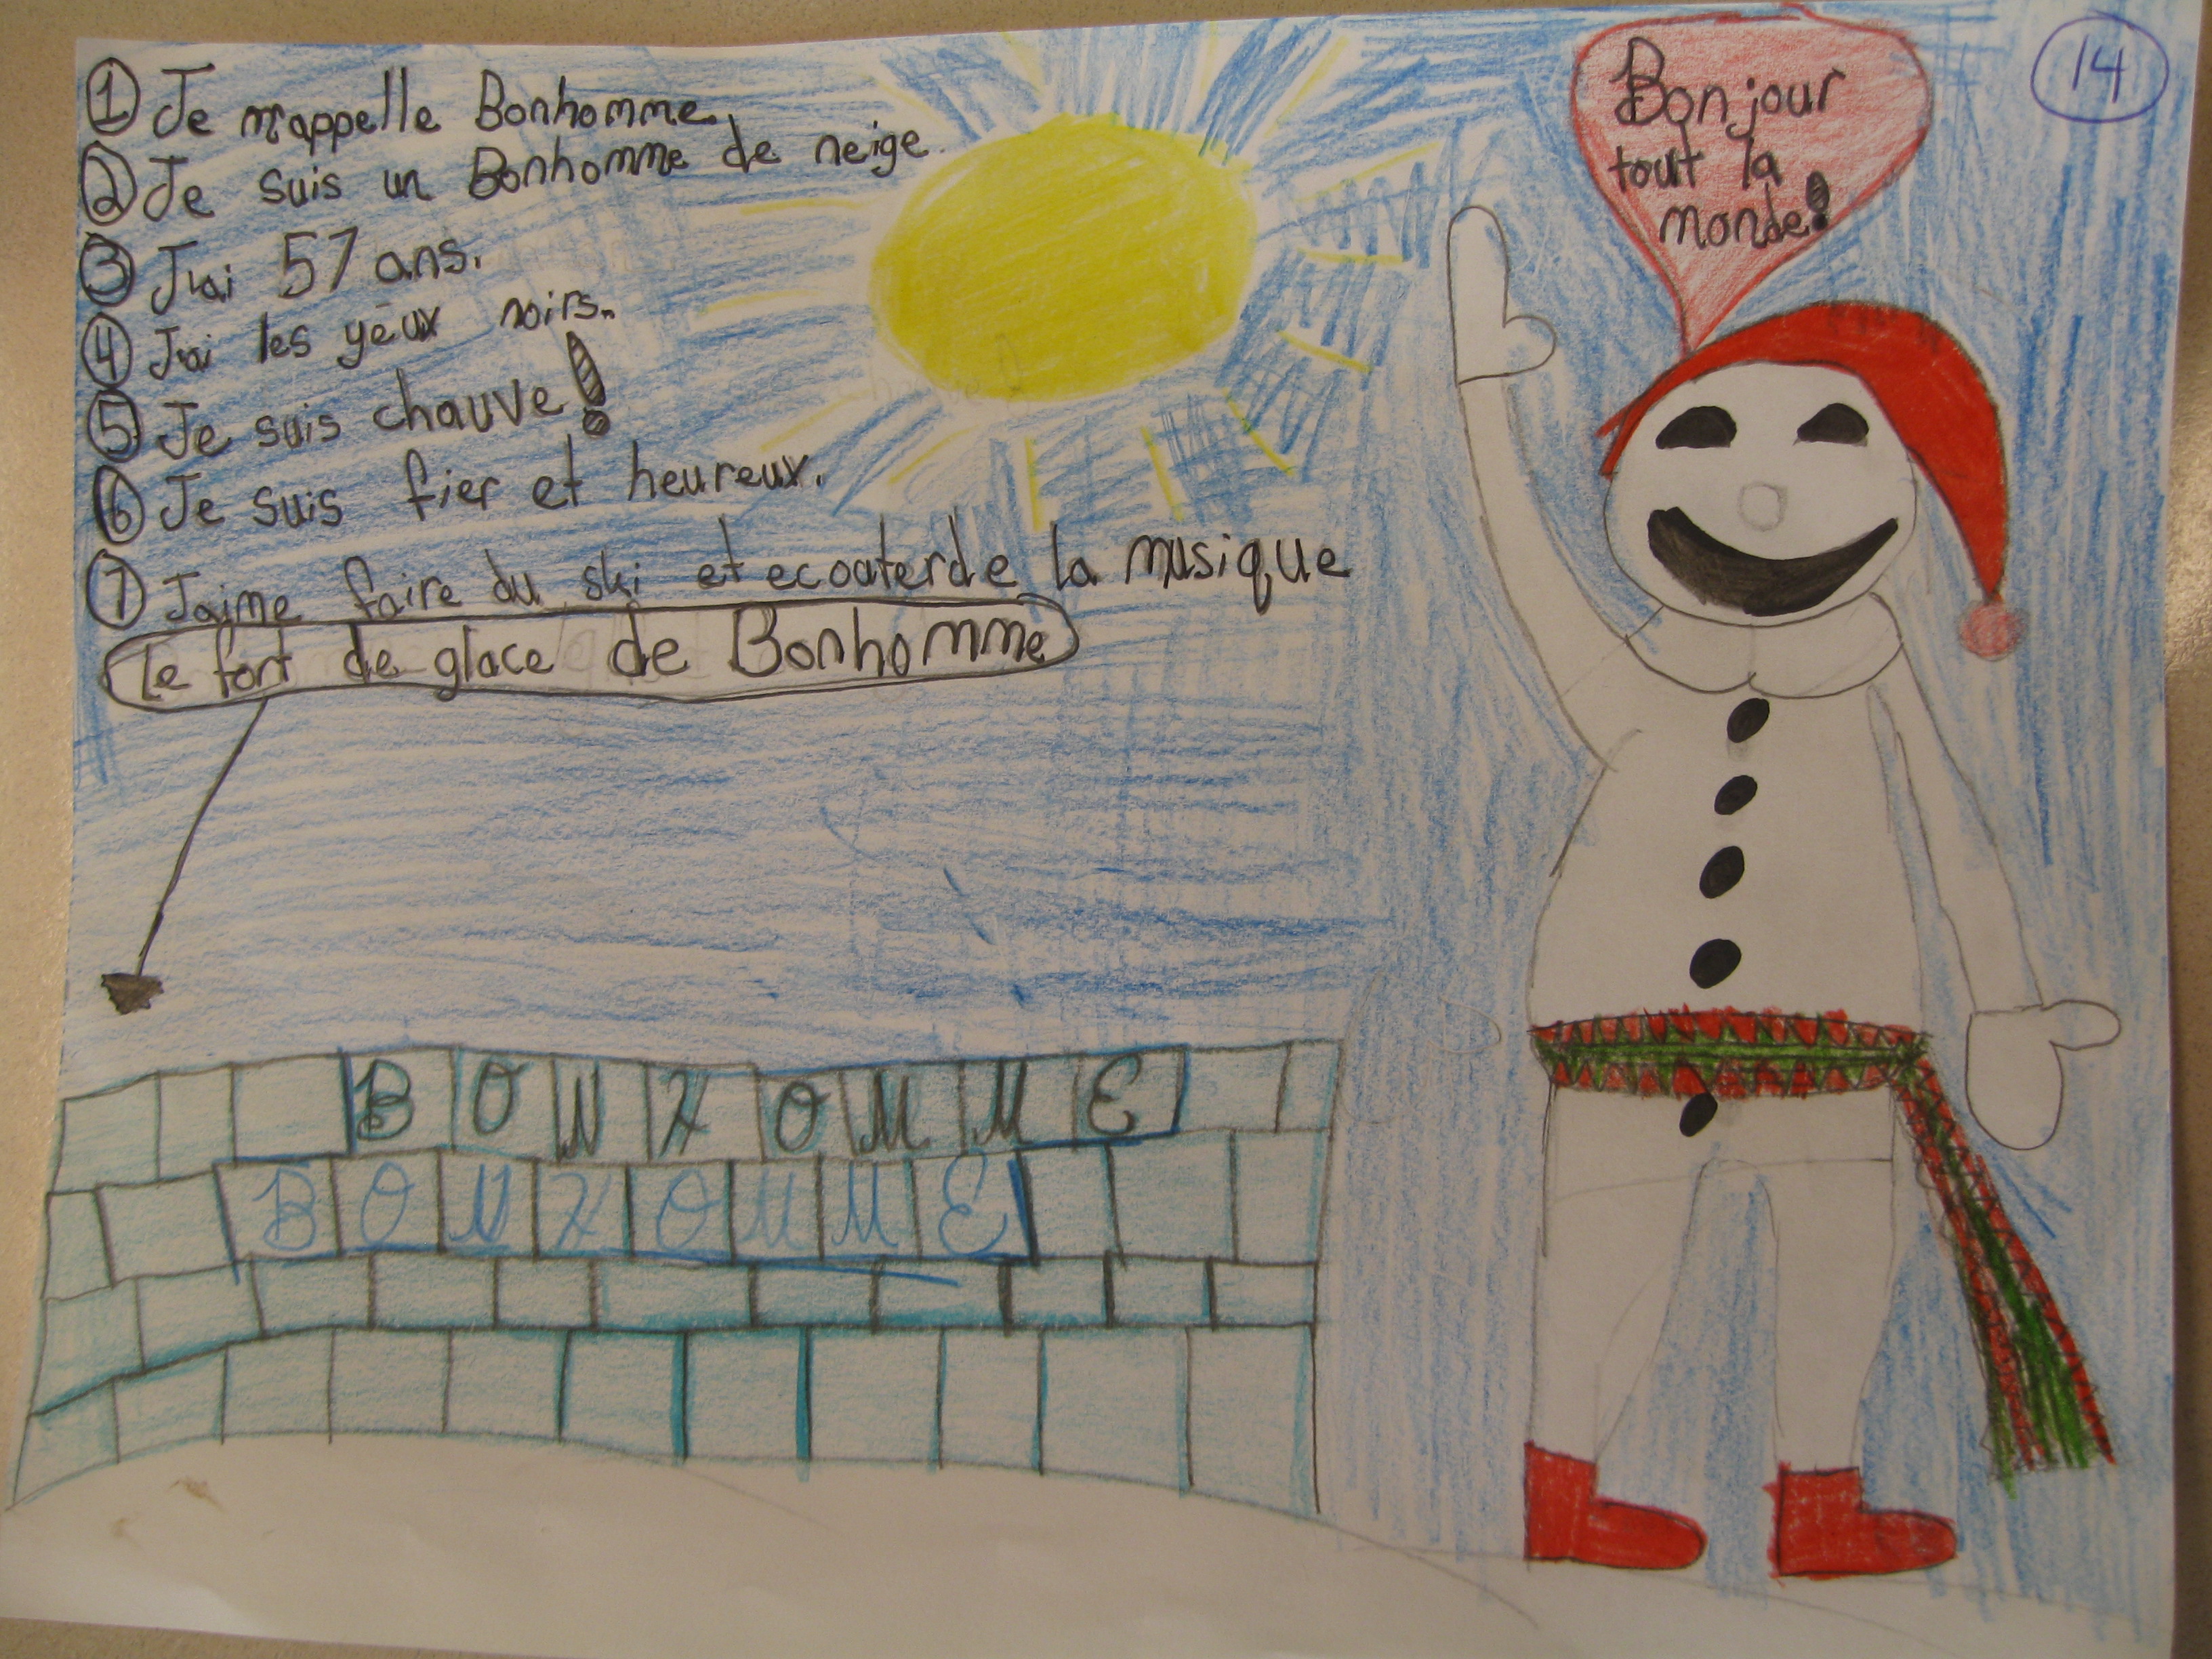 ① Je m'appelle Bonhomme.
② Je suis un Bonhomme de neige.
③ J'ai 57 ans.
④ J'ai les yeux noirs.
⑤ Je suis chauve!
⑥ Je suis fier et heureux.
⑦ J'aime faire du ski et ecouterde la musique
Le fort de glace de Bonhomme
Bonjour
tout la
monde!
14
BONHOMME
BONHOMME